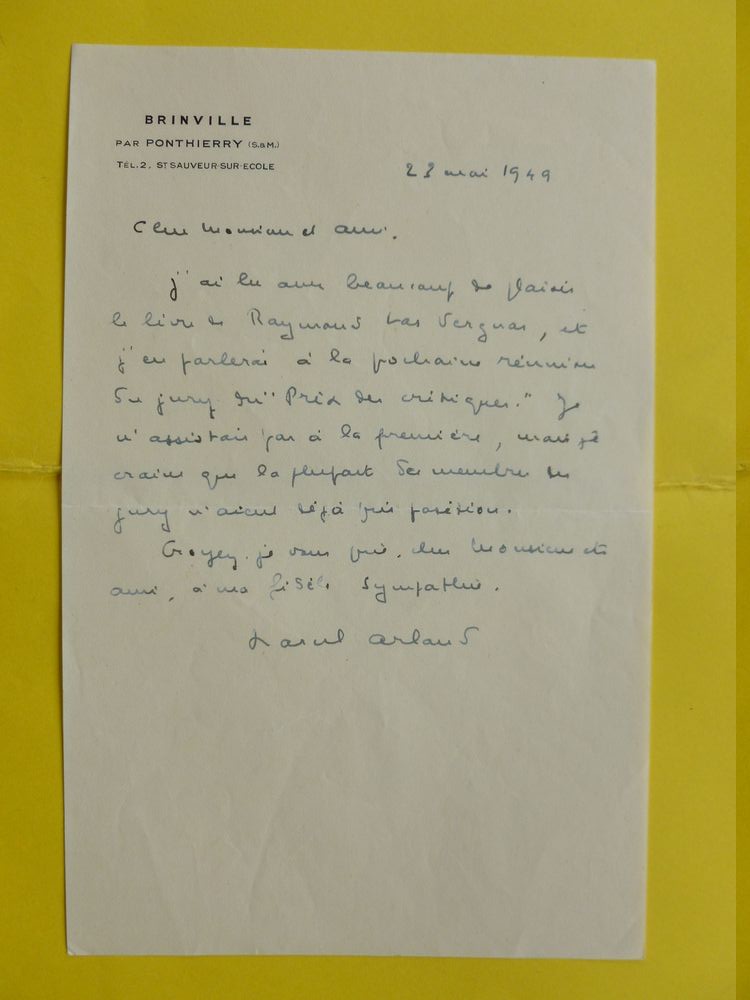 BRINVILLE
PAR PONTHIERRY (S.&M.)
TÉL. 2. ST SAUVEUR-SUR-ECOLE
23 mai 1949
Cher Monsieur et ami.
j'ai lu avec beaucoup de plaisir
le livre de Raymond Las Vergnas, et
j'en parlerai à la prochaine réunion
du jury du "Prix des critiques." Je
n'assistais pas à la première, mais je
crains que la plupart des membres du
jury n'aient déjà pris position.
Croyez, je vous prie, cher Monsieur et
ami, à ma fidèle sympathie.
Marcel Arland